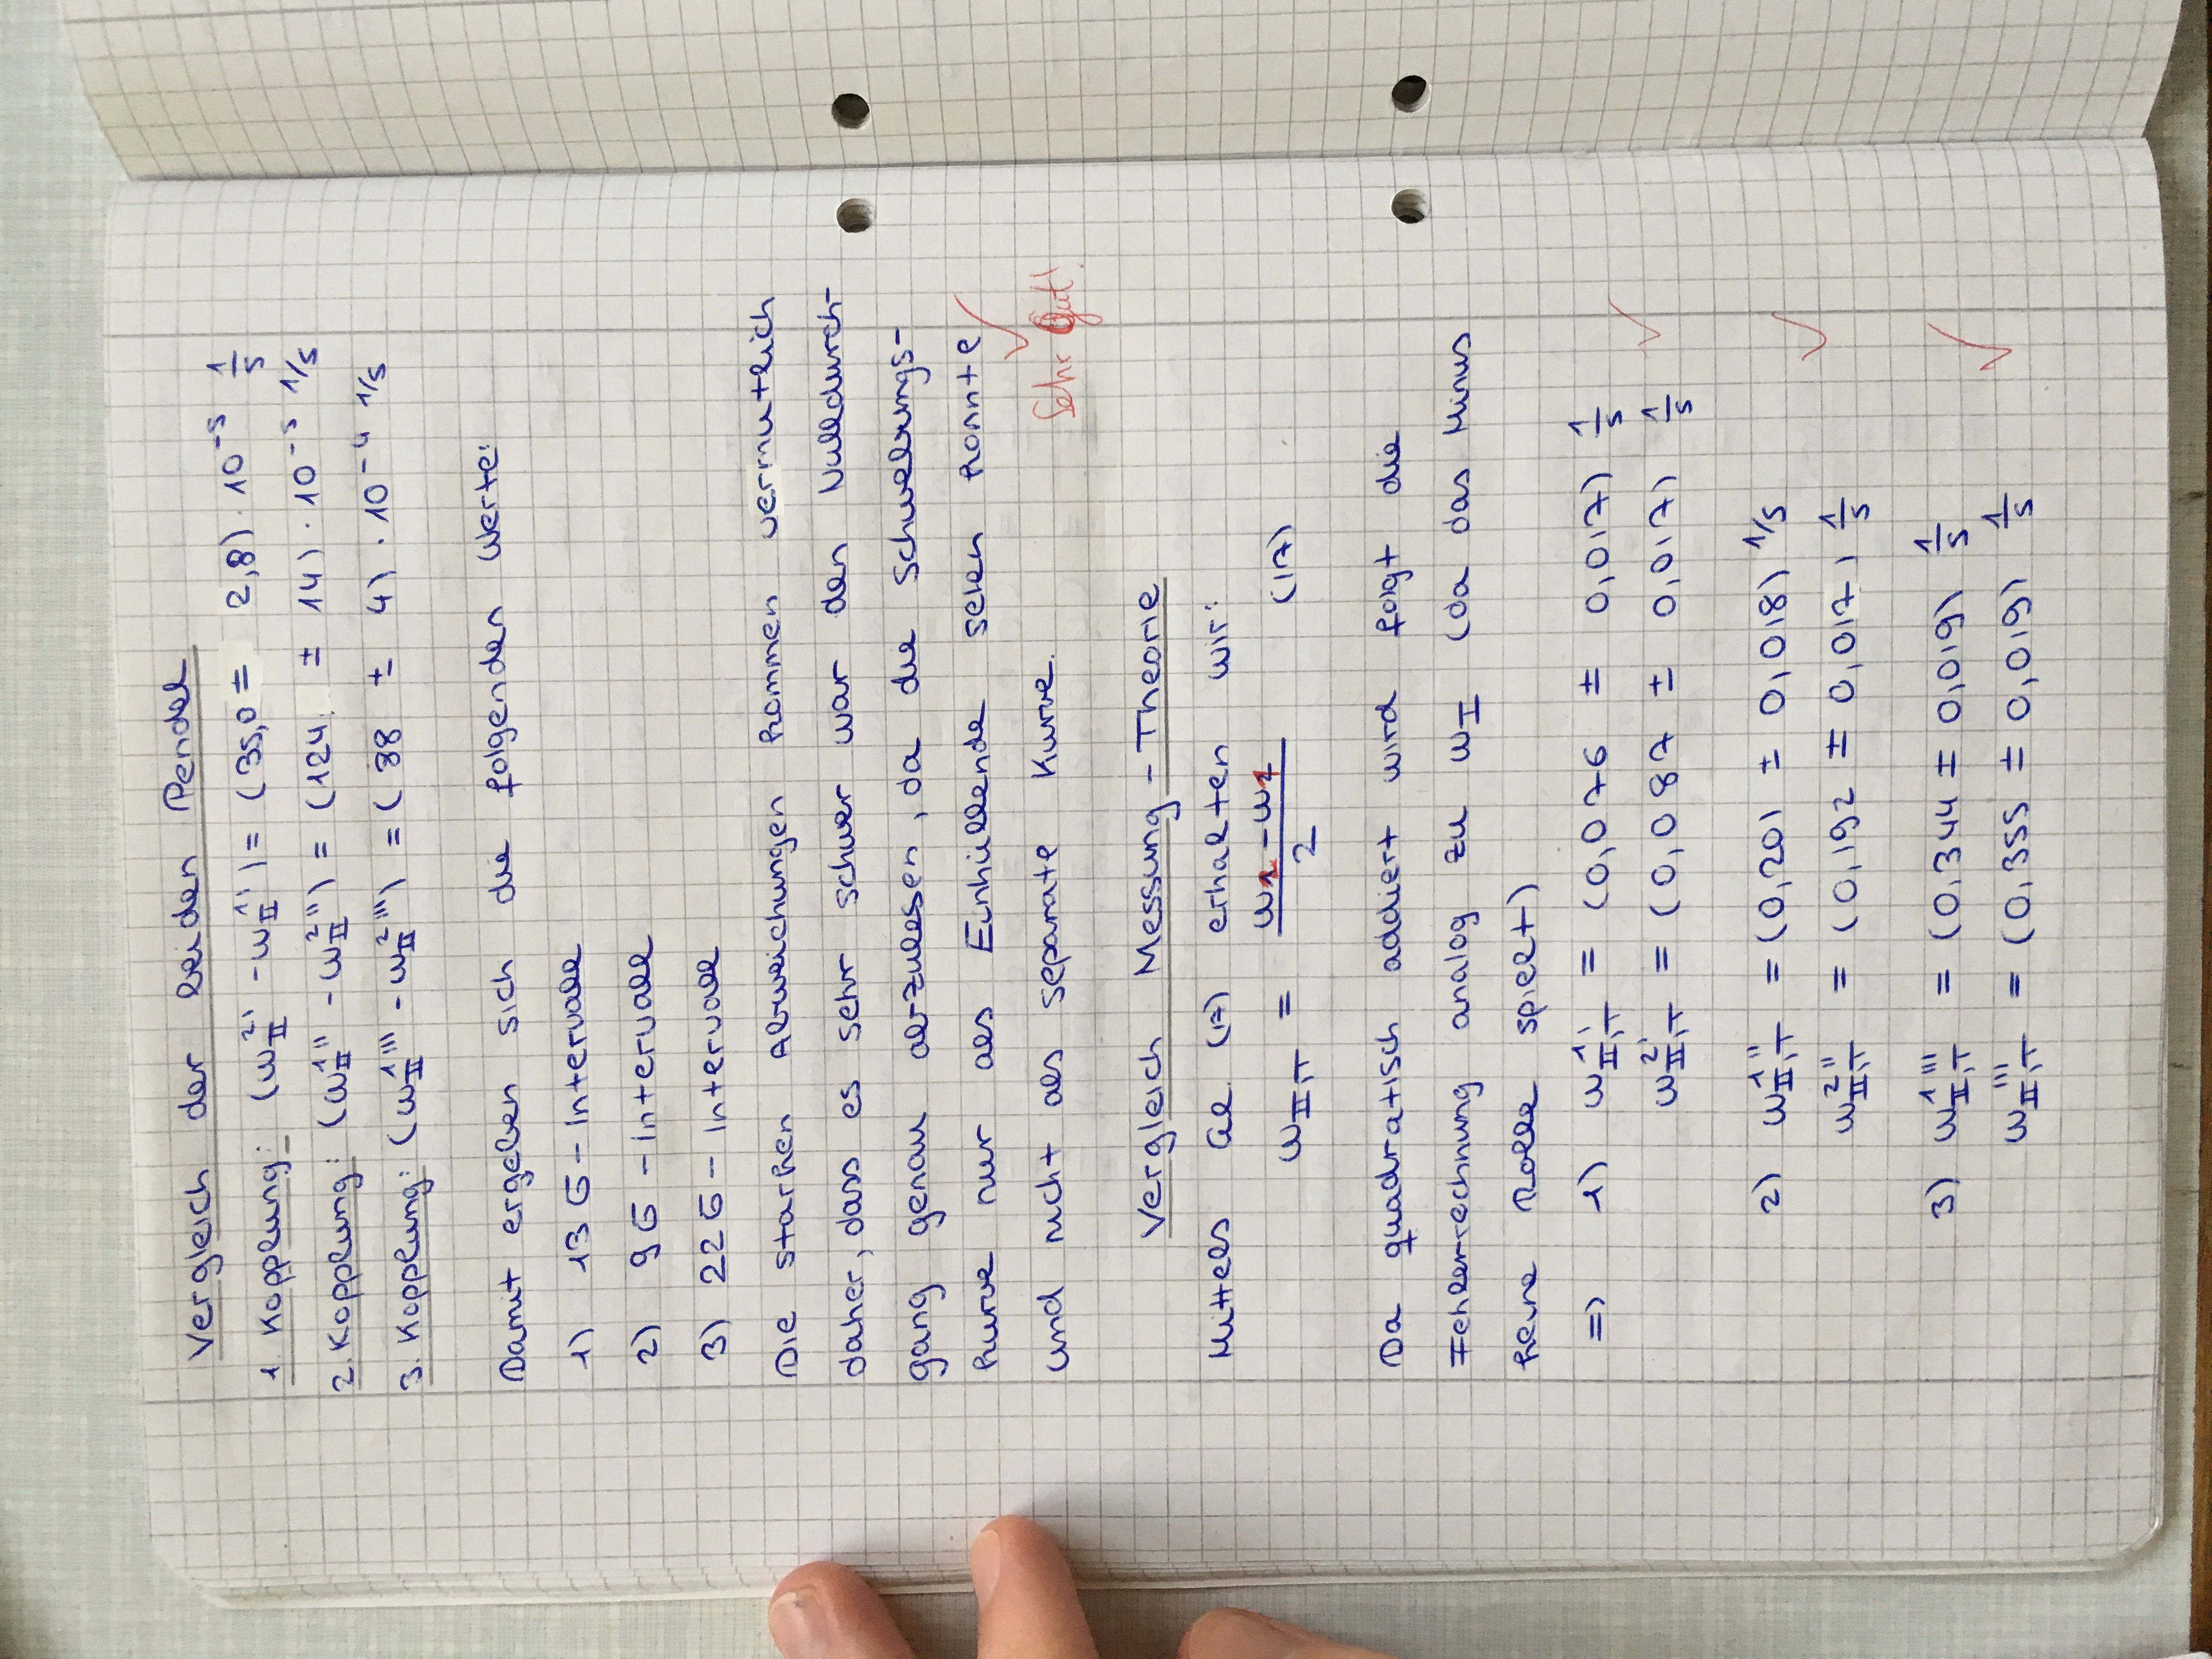 Vergleich der beiden Pendel
1. Kopplung: (ω_II^2' - ω_II^1') = (35,0 ± 2,8) · 10^-5 1/s
2. Kopplung: (ω_II^1'' - ω_II^2'') = (124 ± 14) · 10^-5 1/s
3. Kopplung: (ω_II^1''' - ω_II^2''') = (88 ± 4) · 10^-4 1/s
Damit ergeben sich die folgenden Werte:
1) 13 σ - Intervall
2) 9 σ - Intervall
3) 22 σ - Intervall
Die starken Abweichungen kommen vermutlich
daher, dass es sehr schwer war den Nulldurch-
gang genau abzulesen, da die Schwebungs-
kurve nur als Einhüllende sehen konnte
und nicht als separate Kurve.
Sehr Gut!
Vergleich Messung - Theorie
Mittels Gl. (17) erhalten wir:
ω_II,T = (ω2 - ω1)/2 (17)
Da quadratisch addiert wird folgt die
Fehlerrechnung analog zu ω_I (da das Minus
keine Rolle spielt)
=> 1) ω_II,T^1' = (0,076 ± 0,017) 1/s
ω_II,T^2' = (0,087 ± 0,017) 1/s
2) ω_II,T^1'' = (0,201 ± 0,018) 1/s
ω_II,T^2'' = (0,192 ± 0,017) 1/s
3) ω_II,T^1''' = (0,344 ± 0,019) 1/s
ω_II,T^''' = (0,355 ± 0,019) 1/s